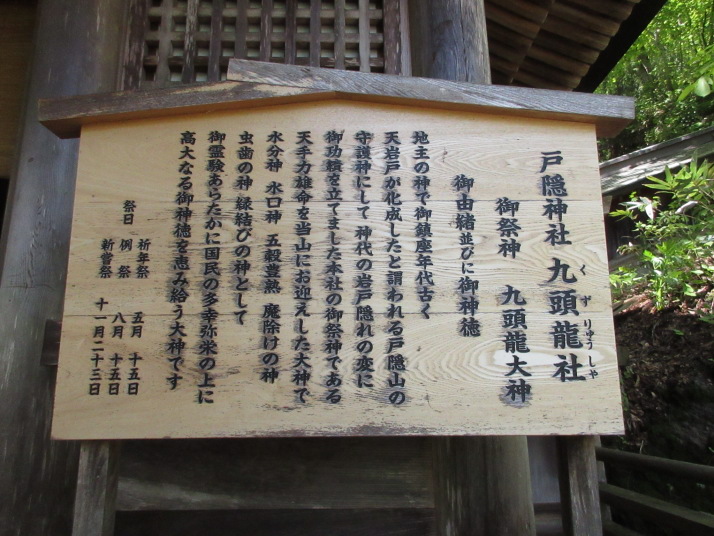 戸隠神社 九頭龍社
くずりゅうしゃ
御祭神 九頭龍大神
御由緒並びに御神徳
地主の神で御鎮座年代古く
天岩戸が化成したと謂われる戸隠山の
守護神にして神代の岩戸隠れの変に
御功績を立てました本社の御祭神である
天手力雄命を当山にお迎えした大神で
水分神 水口神 五穀豊熟 魔除けの神
虫歯の神 縁結びの神として
御霊験あらたかに国民の多幸弥栄の上に
高大なる御神徳を恵み給う大神です
祭日 祈年祭 五月 十五日
例祭 八月 十五日
新嘗祭 十一月二十三日